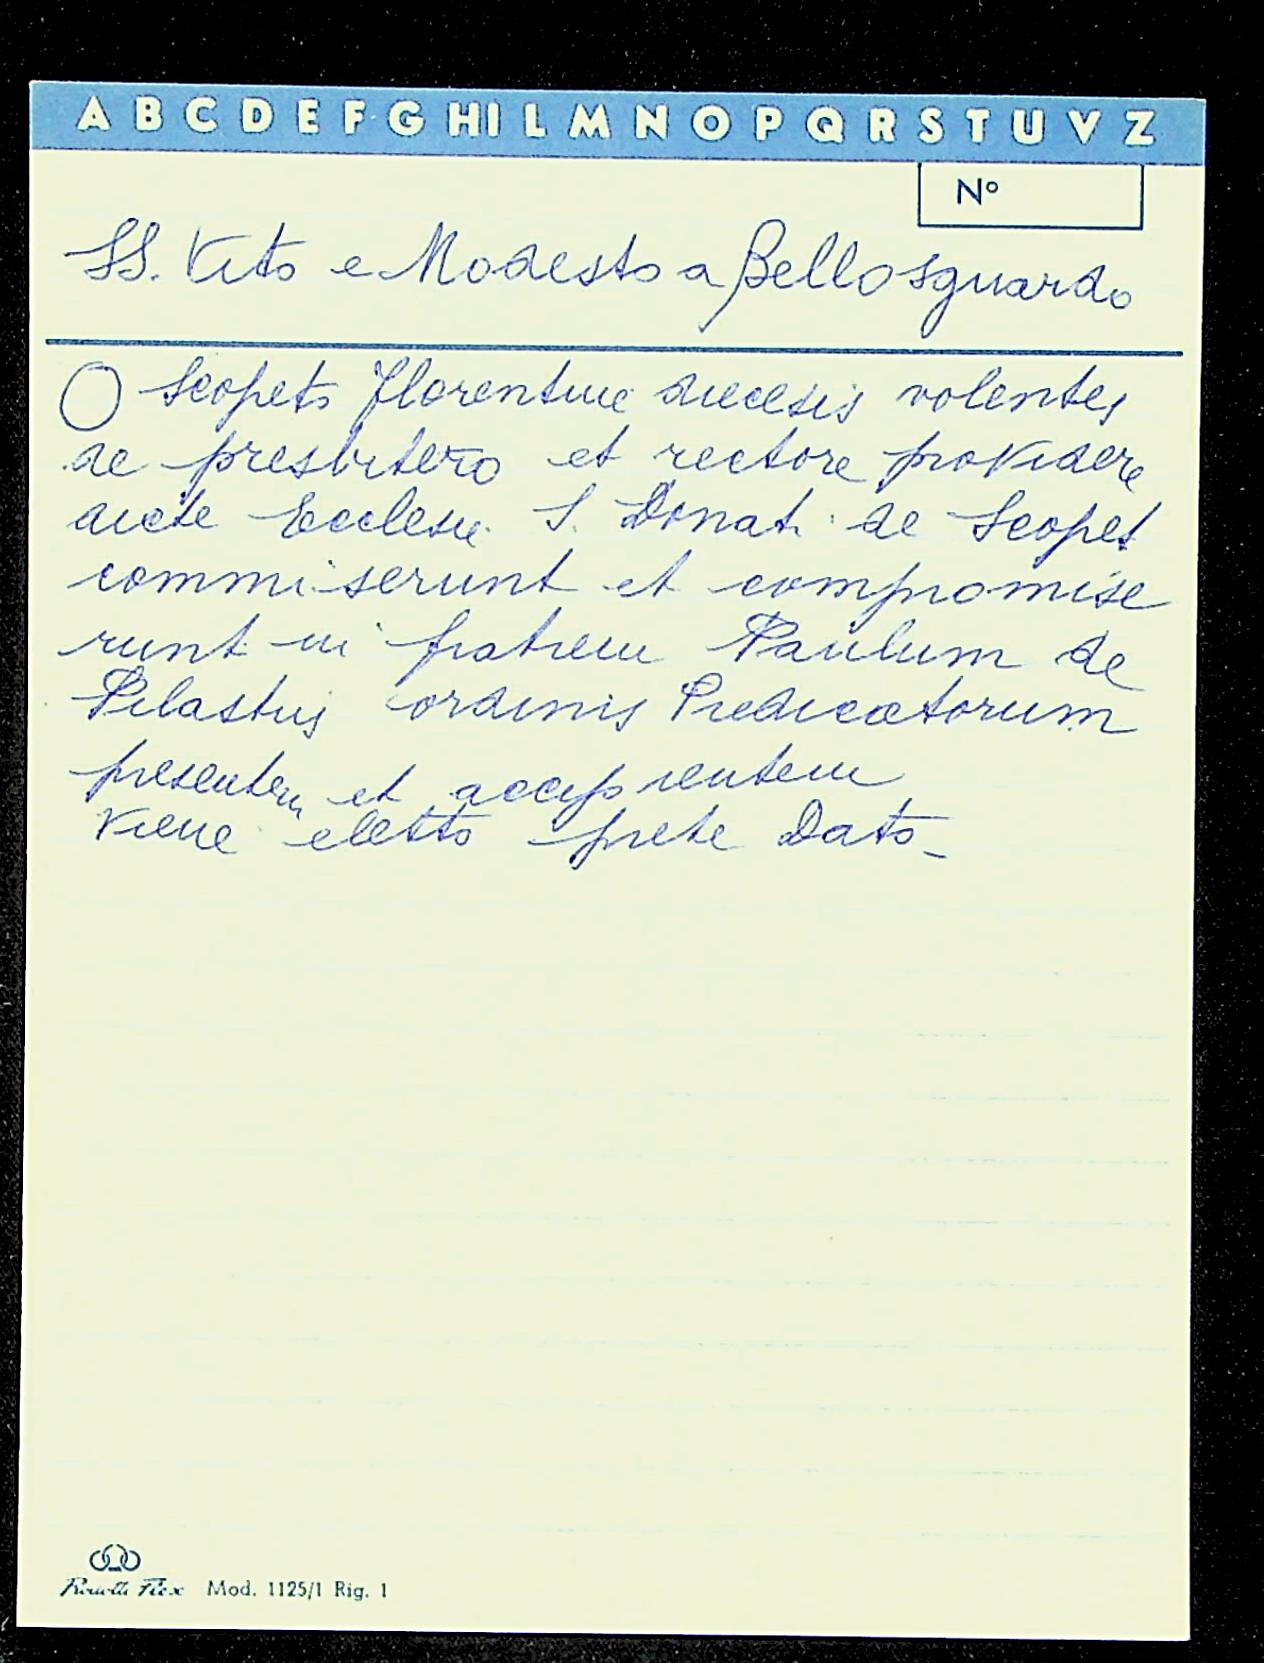 A B C D E F G H I L M N O P Q R S T U V Z
N°
SS. Vito e Modesto a Bellosguardo
O Scopeto florentine diecesis volentes
de presbitero et rectore providere
dicte Ecclesie S. Donati de Scopet
commiserunt et compromise
runt in fratrem Paulum de
Pilastris ordinis Predicatorum
presentem et acceptentem
viene eletto prete Dato_
Mod. 1125/1 Rig. 1